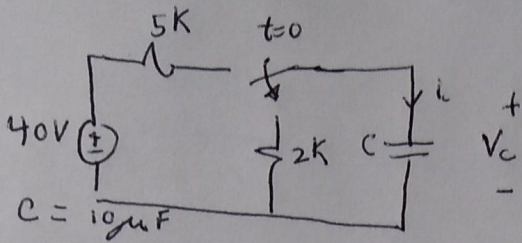 5K
t=0
40V
+
-
2K
C
i
+
Vc
-
C = 10μF